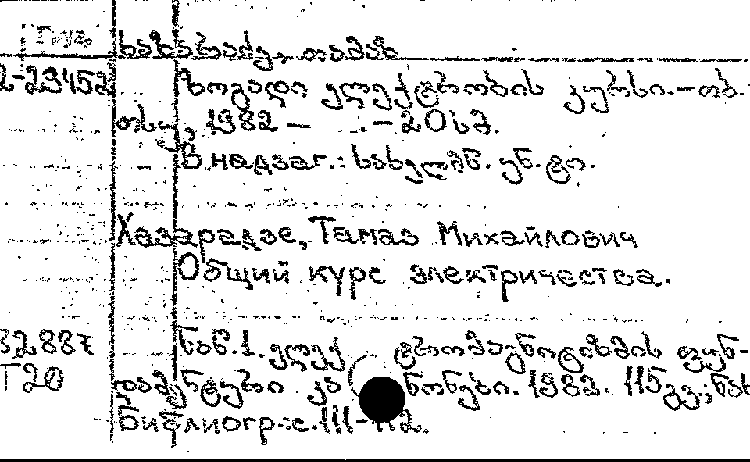 ხაზარაძე, თამაზ
2-23452 ზოგადი ელექტრობის კურსი.-თბ.
თსუ, 1982 — .-20სმ.
В надзаг.: სახელმწ. უნ.ტი.
Хазарадзе, Тамаз Михайлович
Общий курс электричества.
32887 ნაწ.1. ელექ ტრომაგნიტიზმის ფუნ-
Т20 დამენტური კა ნონები. 1982. 115გვ.;
Библиогр.:с.111-112.